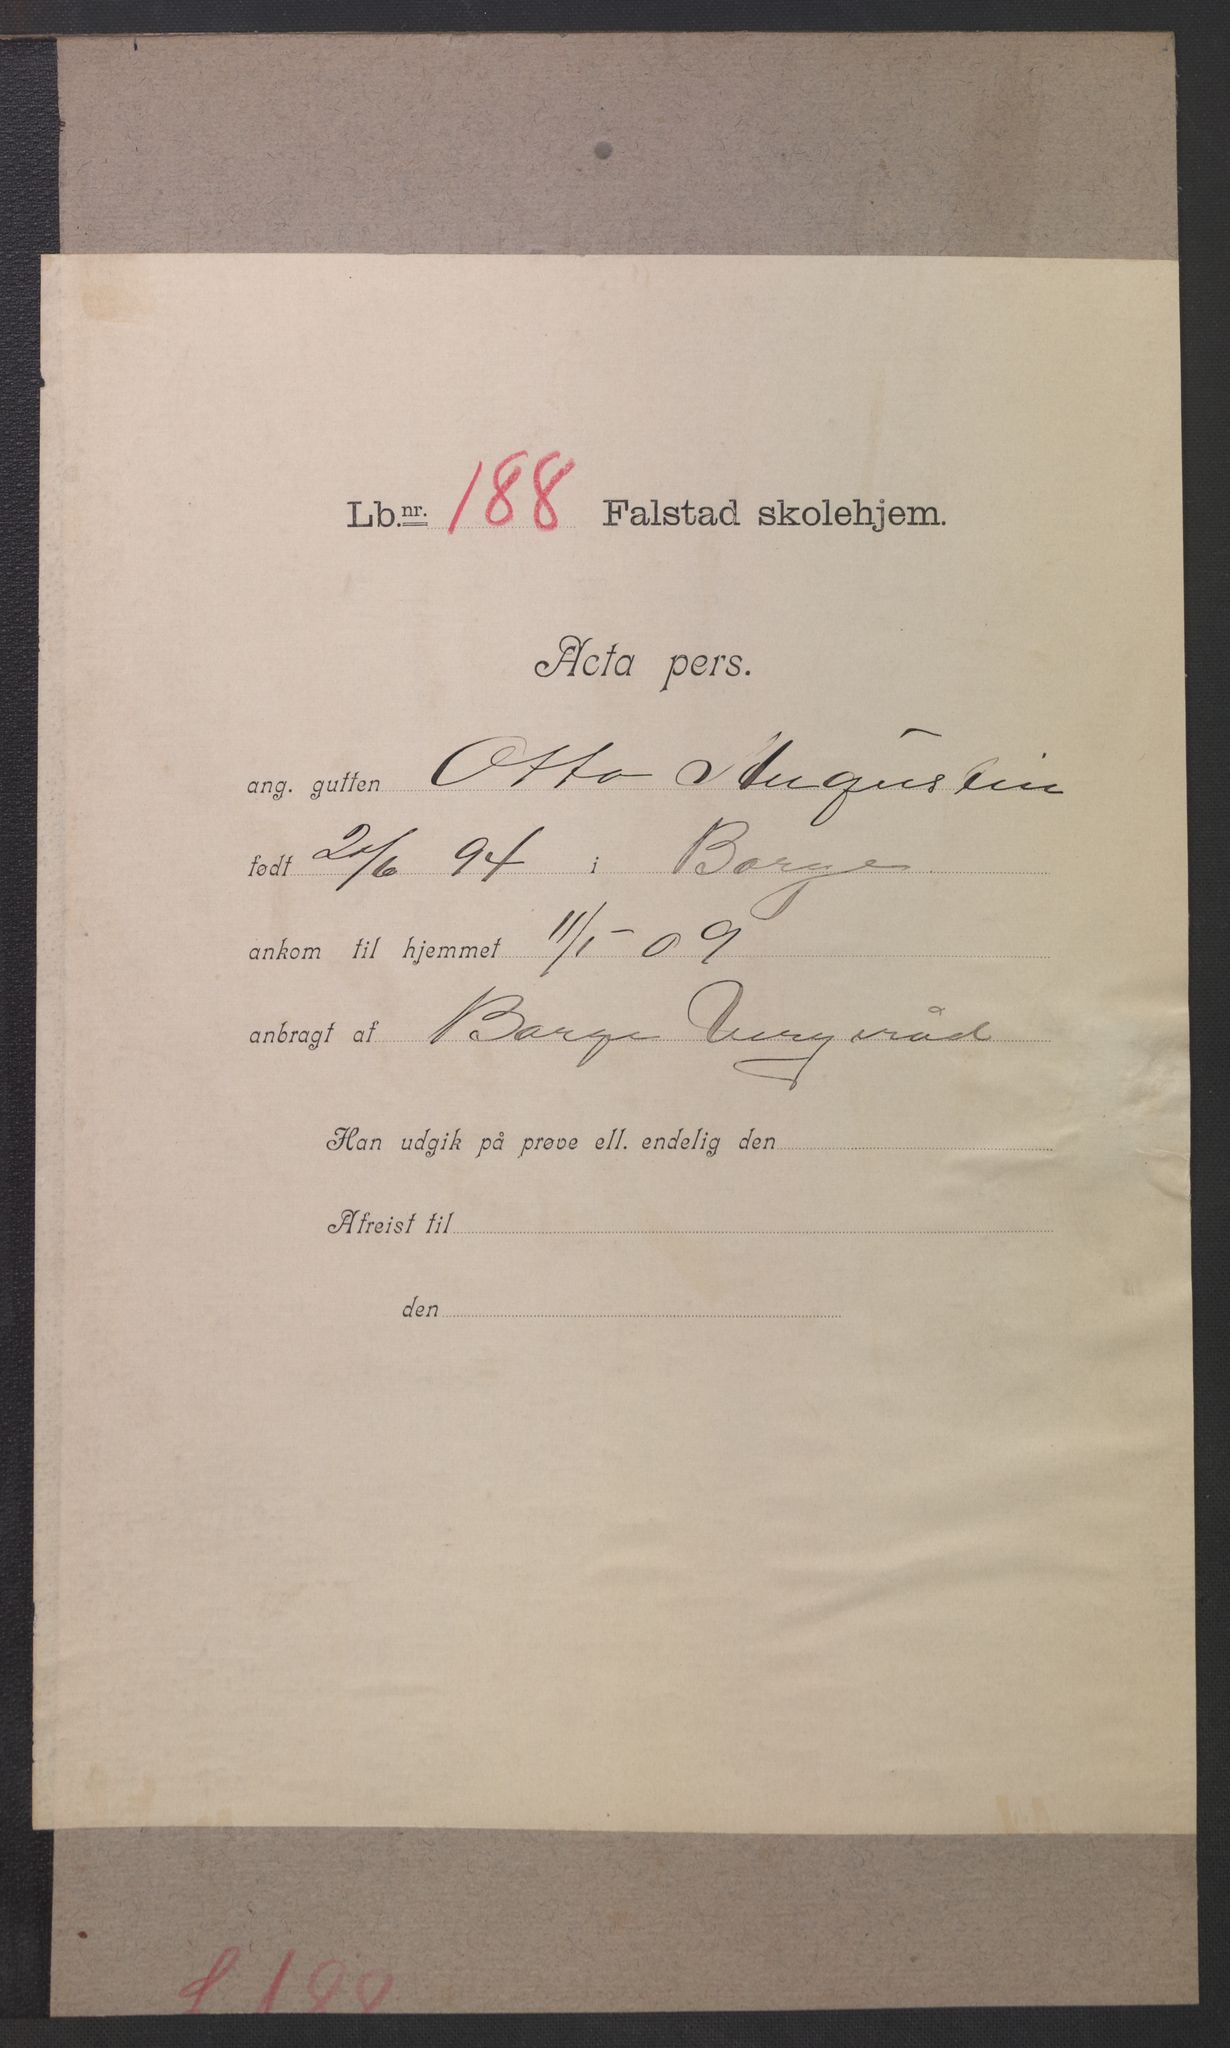 Lb.nr. 188 Falstad skolehjem.
Acta pers.
ang. gutten Otto Augustin
født 20/6 94 i Borge
ankom til hjemmet 11/1 - 09
anbragt af Borge Vergeråd
Han udgik på prøve ell. endelig den
Afreist til
den
188